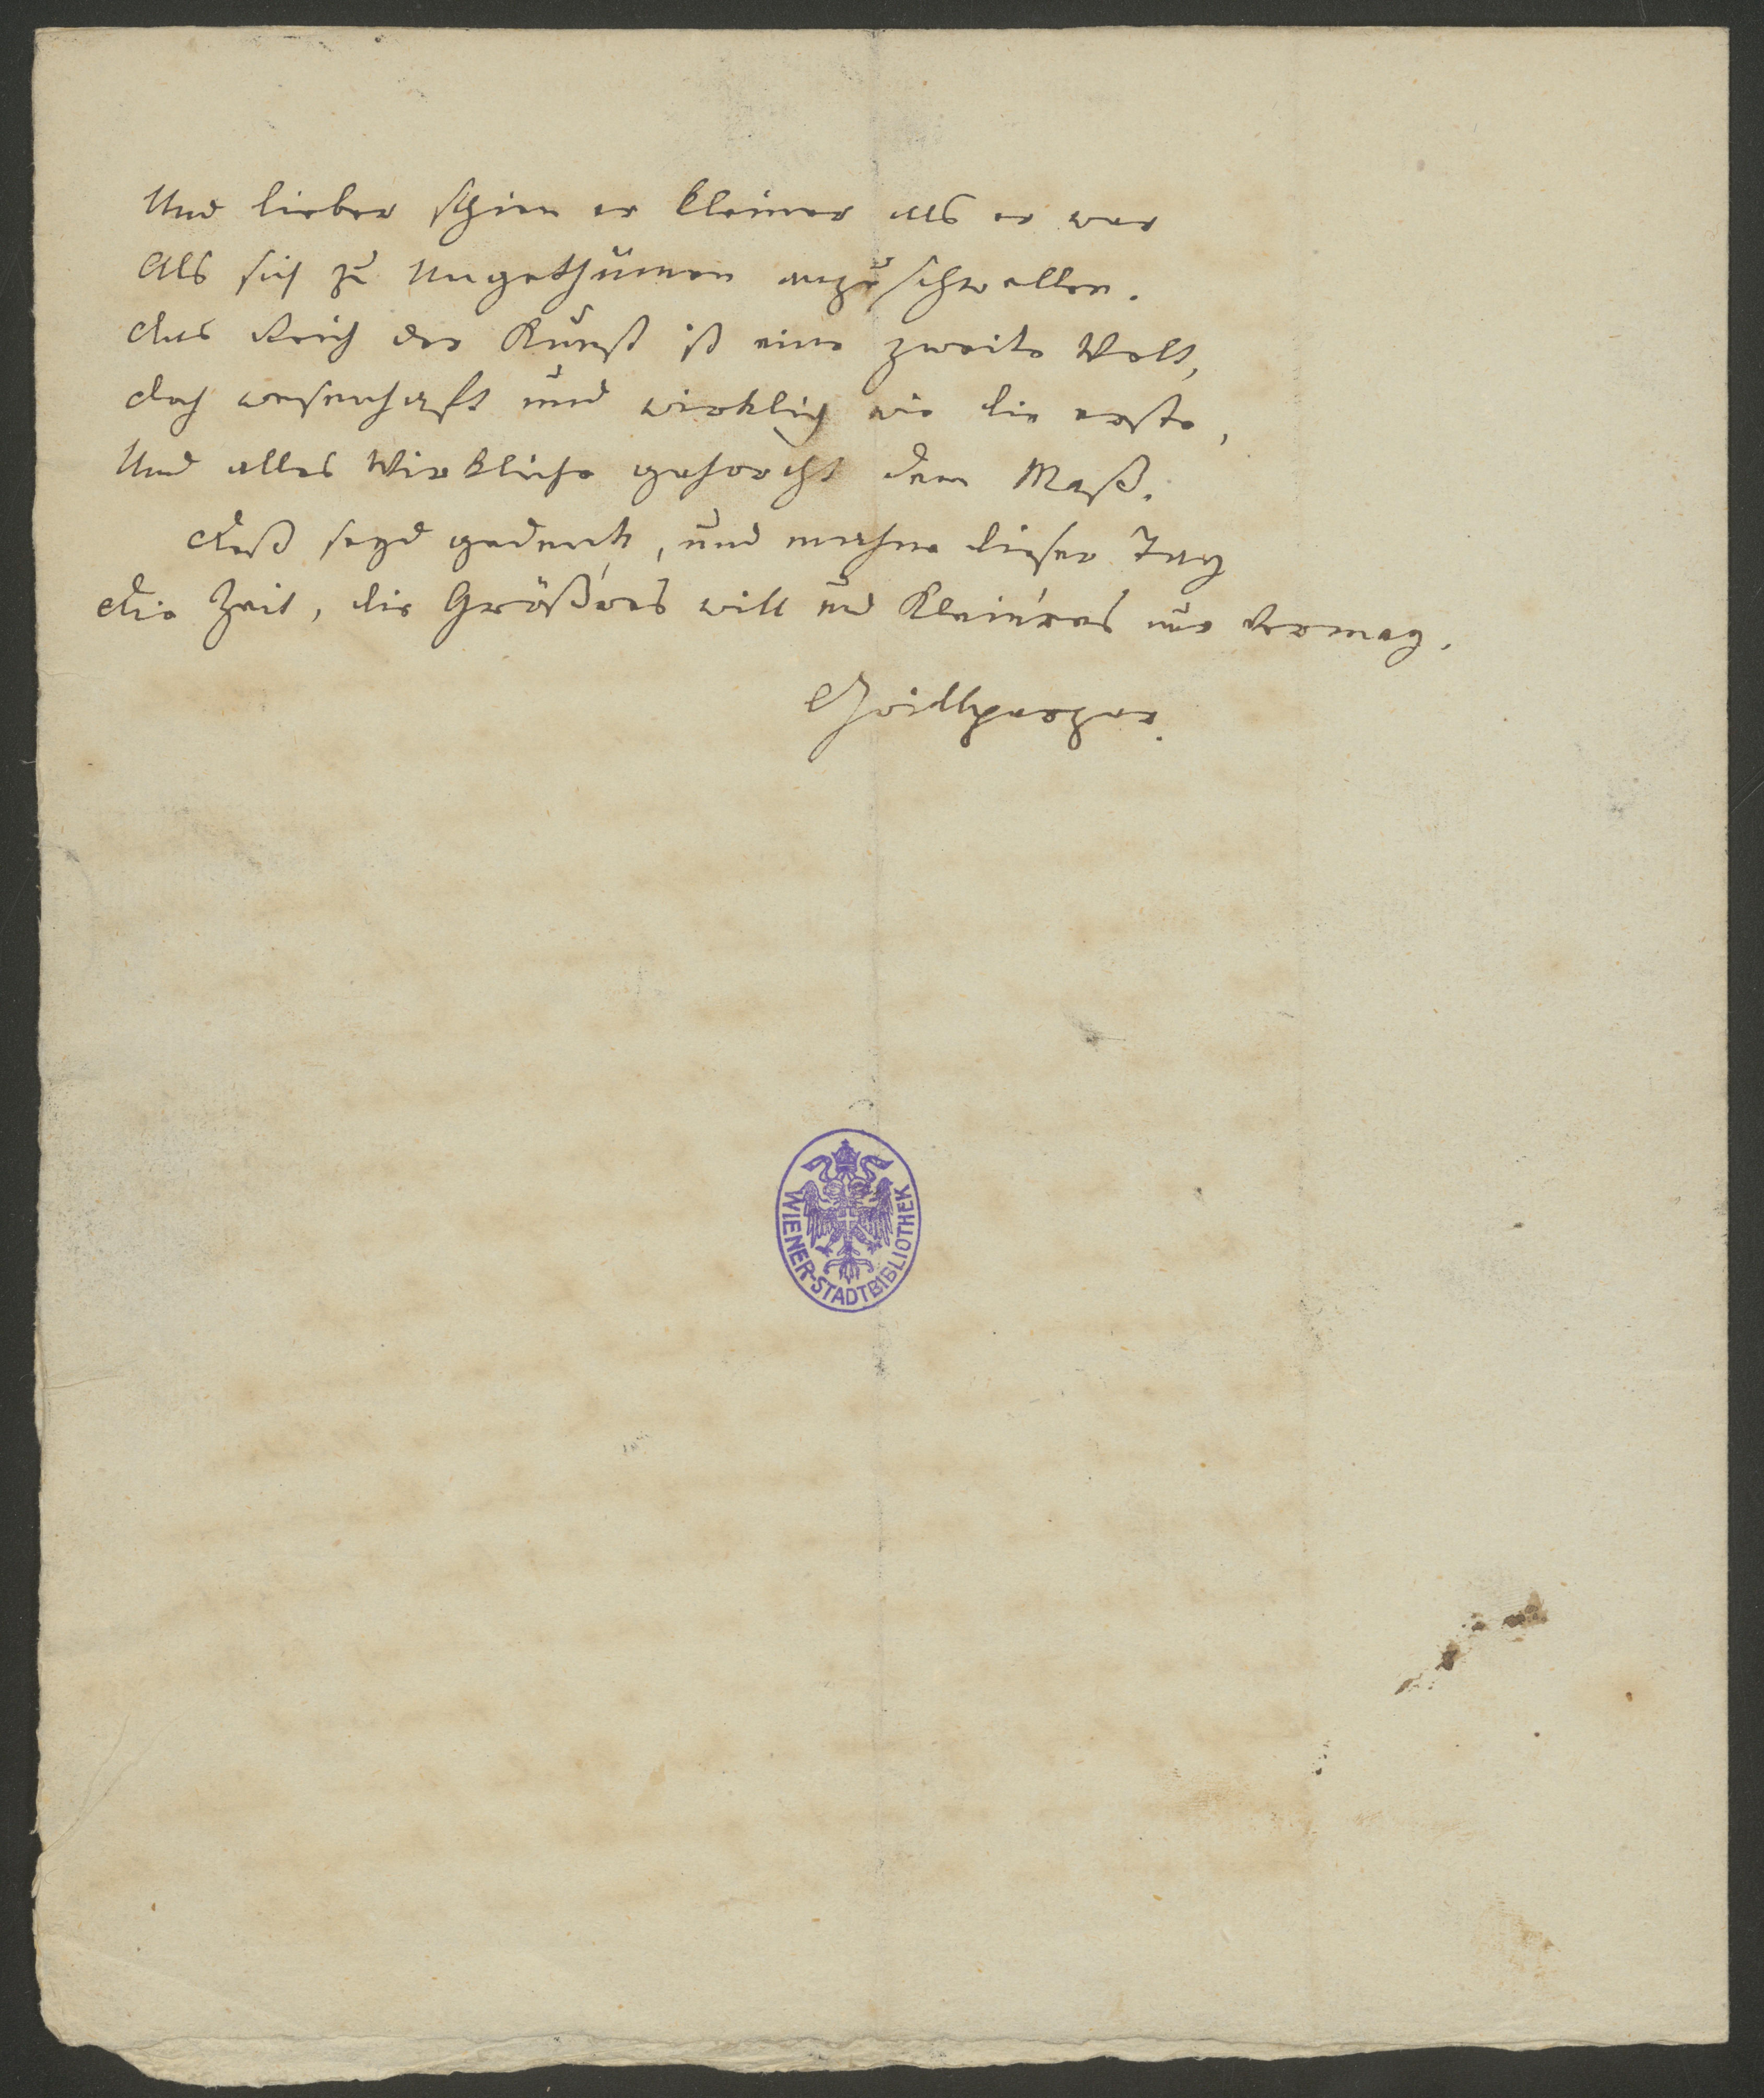 Und lieber schien er kleiner als er war
Als sich zu Ungethümen anzuschwellen.
Das Reich der Kunst ist eine zweite Welt,
Doch wesenhaft und wirklich wie die erste,
Und alles Wirkliche gehorcht dem Maß.
Deß seyd gedenk, und mahne dieser Tag
Die Zeit, die Größ'res will und Klein'res nur vermag.
Grillparzer.
WIENER-STADTBIBLIOTHEK